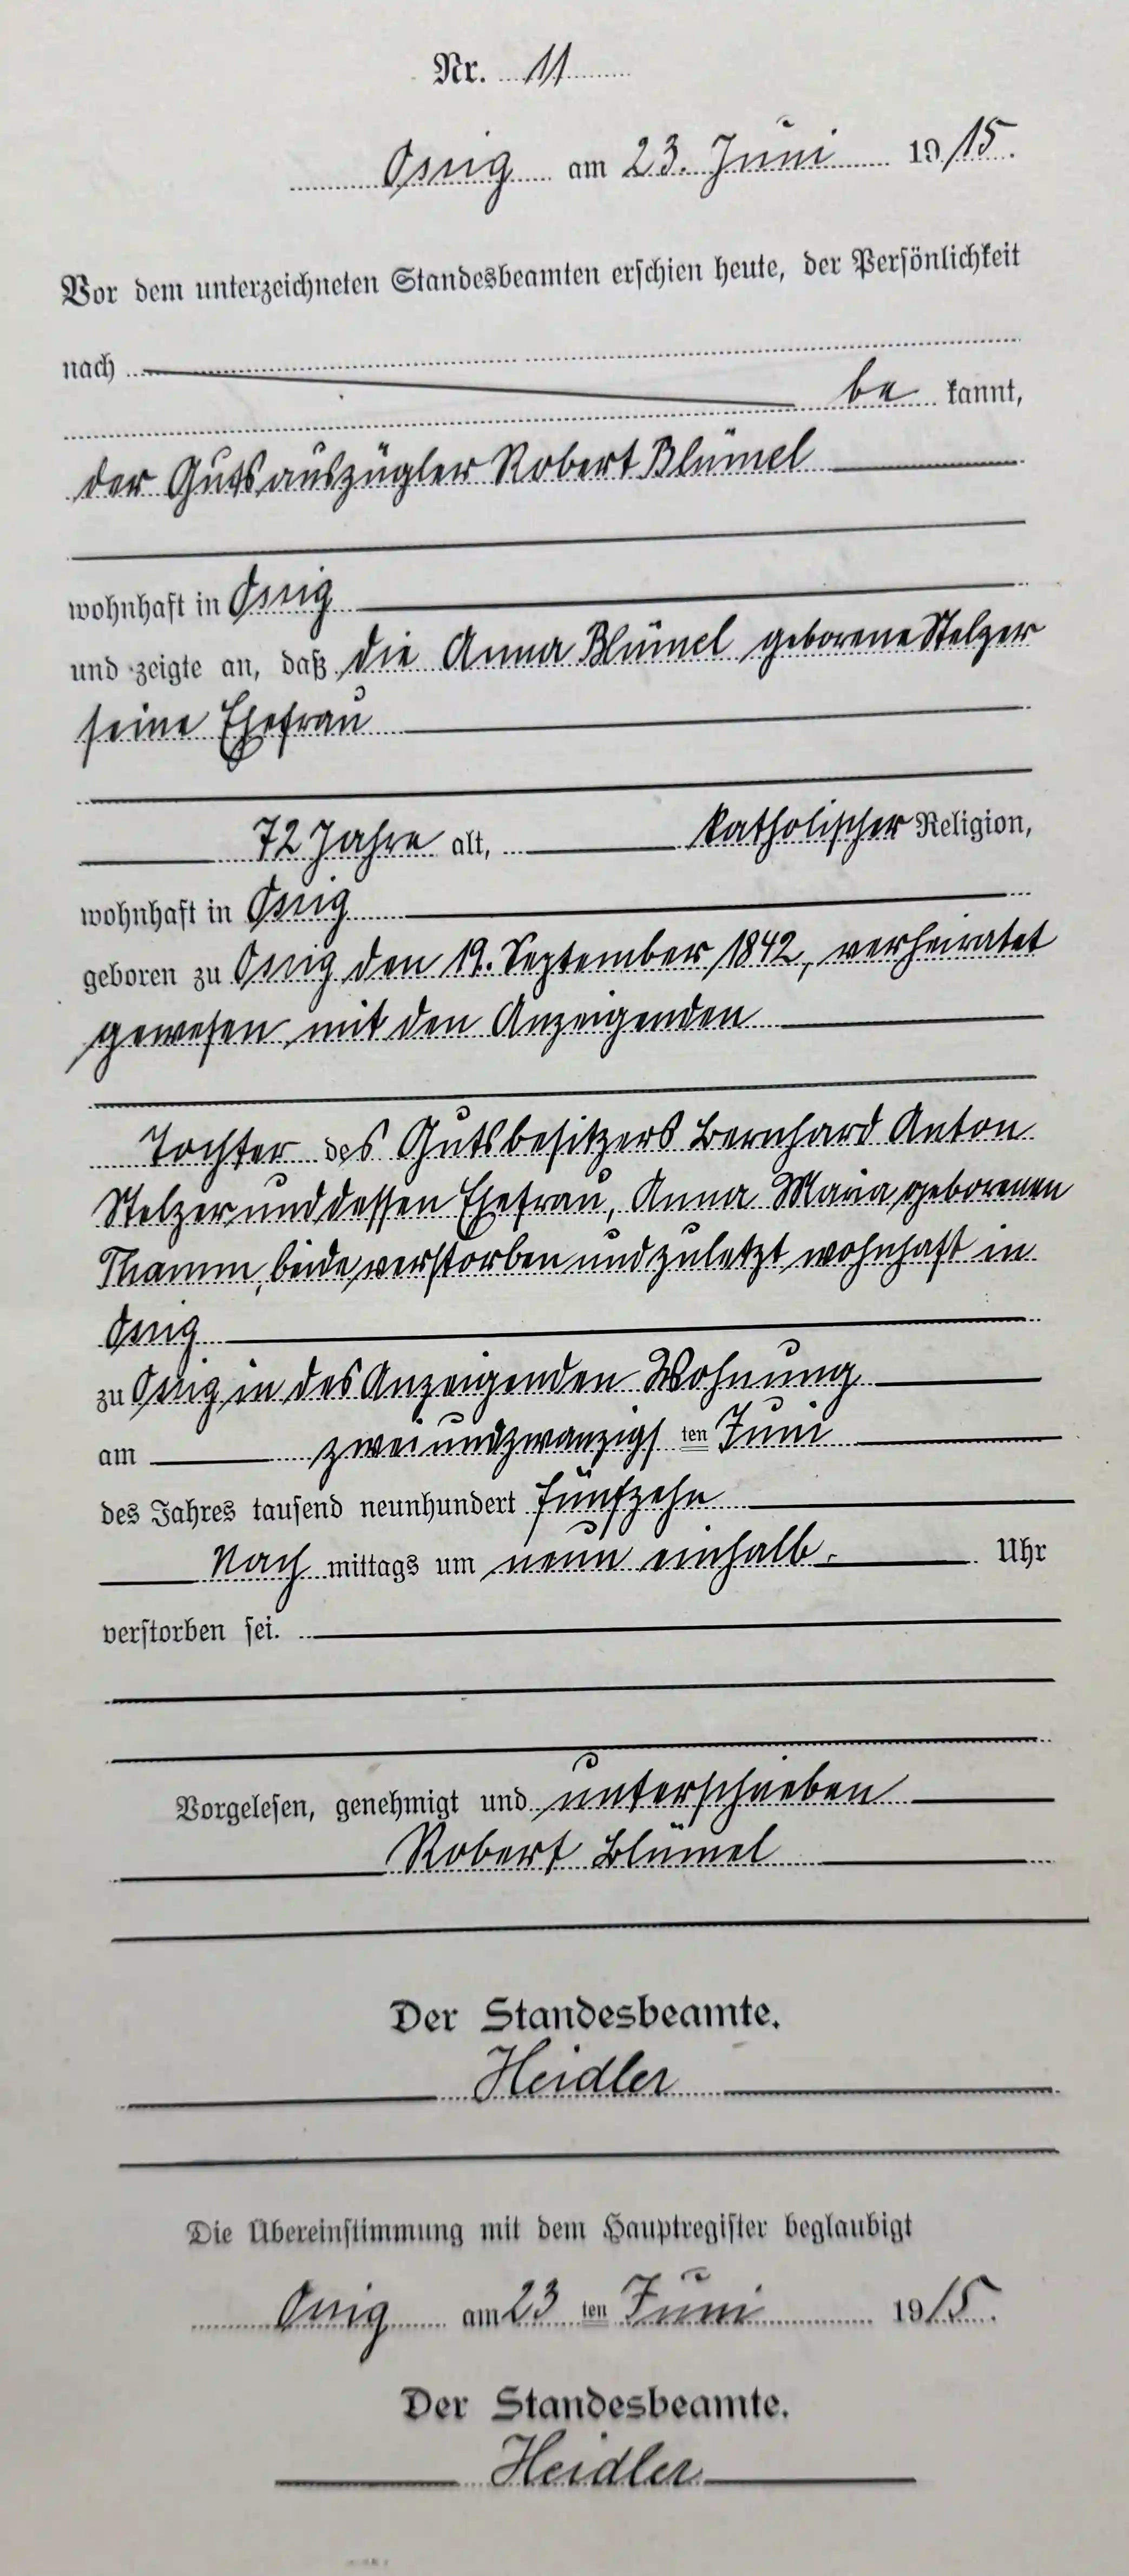 Nr. 11
Ossig am 23. Juni 1915.
Vor dem unterzeichneten Standesbeamten erschien heute, der Persönlichkeit
nach
be kannt,
der Gutsauszügler Robert Blümel
wohnhaft in Ossig
und zeigte an, daß die Anna Blümel geborene Stelzer
seine Ehefrau
72 Jahre alt, katholischer Religion,
wohnhaft in Ossig
geboren zu Ossig den 19. September 1842, verheiratet
gewesen mit den Anzeigenden
Tochter des Gutsbesitzers Bernhard Anton
Stelzer und dessen Ehefrau, Anna Maria geborenen
Thamm, beide verstorben und zuletzt wohnhaft in
Ossig
zu Ossig in des Anzeigenden Wohnung
am zweiundzwanzigs ten Juni
des Jahres tausend neunhundert fünfzehn
Nach mittags um neun einhalb. Uhr
verstorben sei.
Vorgelesen, genehmigt und unterschrieben
Robert Blümel
Der Standesbeamte.
Heidler
Die Übereinstimmung mit dem Hauptregister beglaubigt
Ossig am 23 ten Juni 1915.
Der Standesbeamte.
Heidler